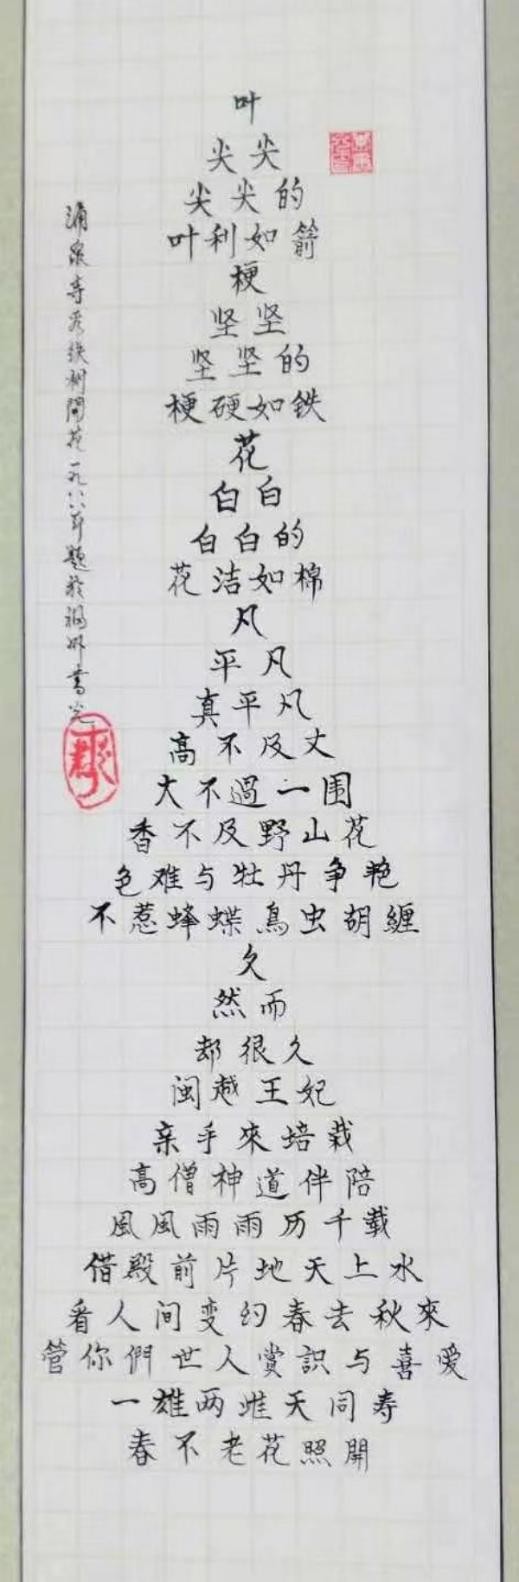 叶
尖尖
尖尖的
叶利如箭
梗
坚坚
坚坚的
梗硬如鉄
花
白白
白白的
花洁如棉
凡
平凡
真平凡
高不及丈
大不過一围
香不及野山花
色难与牡丹争艳
不惹蜂蝶鳥虫胡纏
久
然而
却很久
闽越王妃
亲手來培栽
高僧神道伴陪
風風雨雨历千載
借殿前片地天上水
看人间变幻春去秋來
管你們世人賞識与喜爱
一雄两雌天同寿
春不老花照開
涌泉寺观鉄树開花一九八八年題於福州書